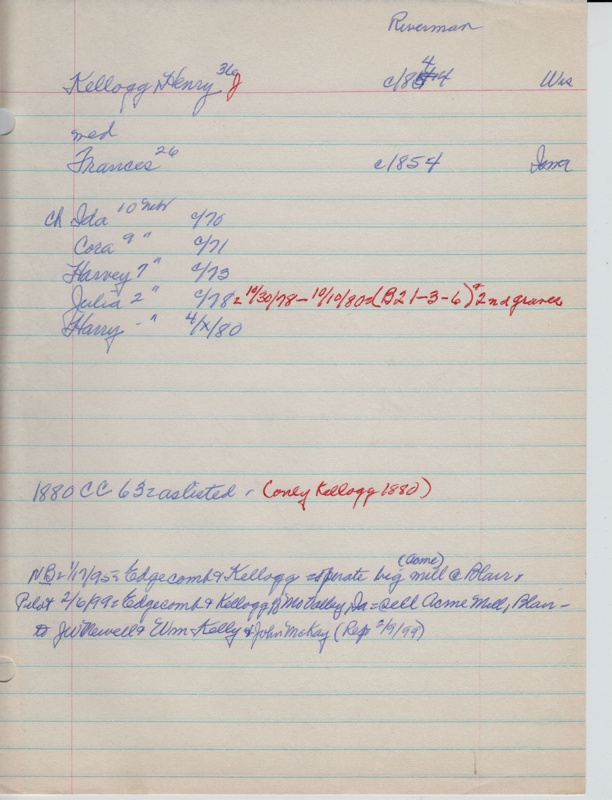 Riverman
Kellogg, Henry 36 c/844 Wis
wed
Frances 26 c/854 Iowa
ch Ida 10 Nebr c/70
Cora 9 " c/71
Harvey 7 " c/73
Julia 2 " c/78 = 10/30/78 - 10/10/80 d (B21-3-6) 2nd graves
Harry - " 4/x/80
1880 CC 63 = as listed. (only Kellogg 1880)
NB = 1/17/95 = Edgecomb & Kellogg = operate big (Acme) mill @ Blair.
Pilot 2/6/99 = Edgecomb & Kellogg Mo Valley, Ia = sell Acme Mill, Blair -
to JW Newell & Wm Kelly & John McKay (Rep 2/9/99)